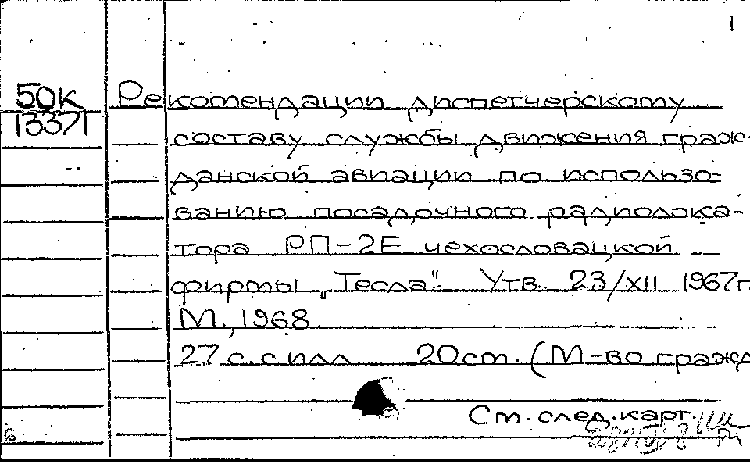 1
50К
13371
Рекомендации диспетчерскому
составу службы движения граж-
данской авиации по использо-
ванию посадочного радиолока-
тора РП-2Е чехословацкой
фирмы „Тесла". Утв. 23/XII 1967г.
М., 1968.
27 с. с илл. 20см. (М-во гражд
См. след. карт.